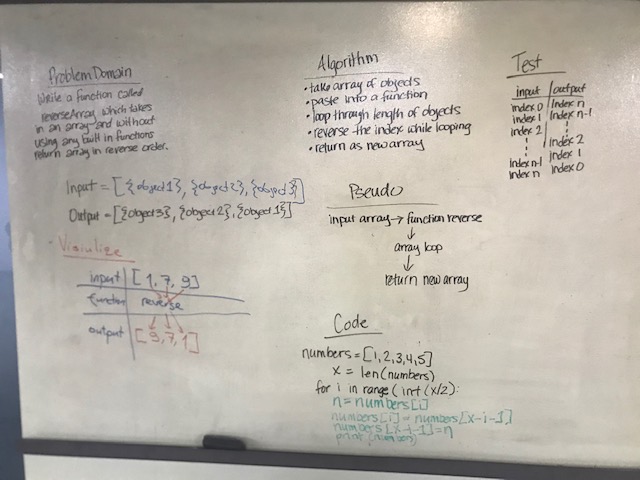 Problem Domain
Write a function called
reverseArray which takes
in an array and without
using any built in functions
return array in reverse order.
Input = [{object1}, {object2}, {object3}]
Output = [{object3}, {object2}, {object1}]
- Visiulize
input [1, 7, 9]
function reverse
output [9, 7, 1]
Algorithm
• take array of objects
• paste into a function
• loop through length of objects
• reverse the index while looping
• return as new array
Pseudo
input array → function reverse
↓
array loop
↓
return new array
Code
numbers = [1,2,3,4,5]
x = len(numbers)
for i in range (int(x/2):
n = numbers[i]
numbers[i] = numbers[x-i-1]
numbers[x-i-1] = n
print
Test
input output
index 0 index n
index 1 index n-1
index 2
index 2
index n-1 index 1
index n index 0